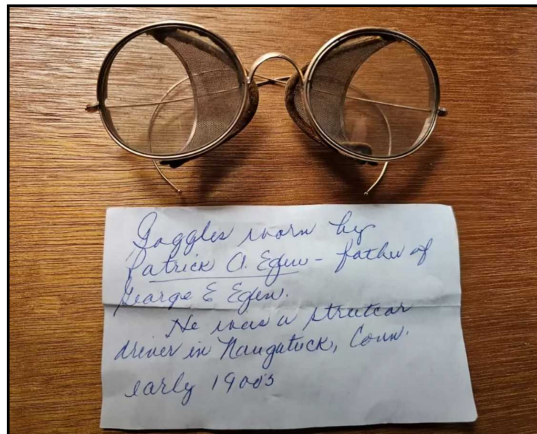 Goggles worn by
Patrick A. Egen - father of
George E Egen.
He was a streetcar
driver in Naugatuck, Conn.
early 1900s